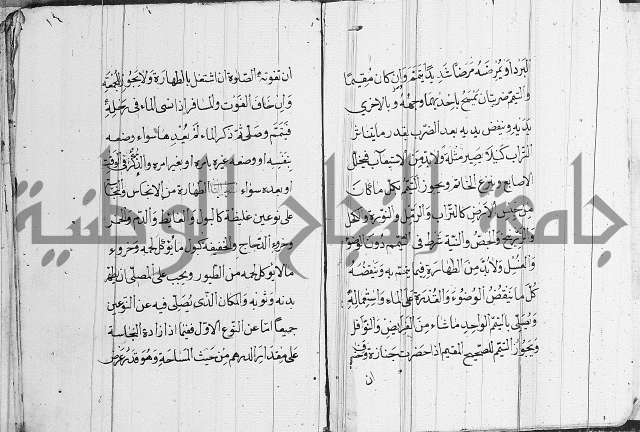 البرد او يمرضه مرضا شديدا يتيمم وان كان مقيما
والتيمم ضربتان يمسح باحديهما وجهه وبالاخرى
يديه وينفض يديه بعد الضرب بقدر ما يتناثر
التراب كيلا يصير مثلة ولابد من الاستيعاب فيخلل
الاصابع وينزع الخاتم ويجوز التيمم بكل ما كان
من جنس الارض كالتراب والرمل والنورة والكحل
والزرنيخ والجص والنية شرط في التيمم دون الوضوء
والغسل ولابد من الطهارة فيما يتيمم به وينقضه
كل ما ينقض الوضوء والقدرة على الماء واستعماله
ويصلى بالتيمم الواحد ما شاء من الفرائض والنوافل
ويجوز التيمم للصحيح المقيم اذا حضرت جنازة وخشى
ان
ان تفوته الصلوة ان اشتغل بالطهارة ولا يجوز للجمعة
وان خاف الفوت والمسافر اذا نسى الماء فى رحله
فتيمم وصلى ثم ذكر الماء لم يعدها سواء وضعه
بنفسه او وضعه غيره بامره او بغير امره والذكر فى الوقت
او بعده سواء الطهارة من الانجاس
على نوعين غليظة كالبول والغائط والدم والخمر
وخرء الدجاج والخفيفة كبول ما يؤكل لحمه وخرء
ما لا يؤكل لحمه من الطيور ويجب على المصلى ان يطهر
بدنه وثوبه والمكان الذى يصلى فيه عن النوعين
جميعا اما عن النوع الاول فيما اذا زادة النجاسة
على مقدار الدرهم من حيث المساحة وهو قدر عرض
جامعة النجاح الوطنية